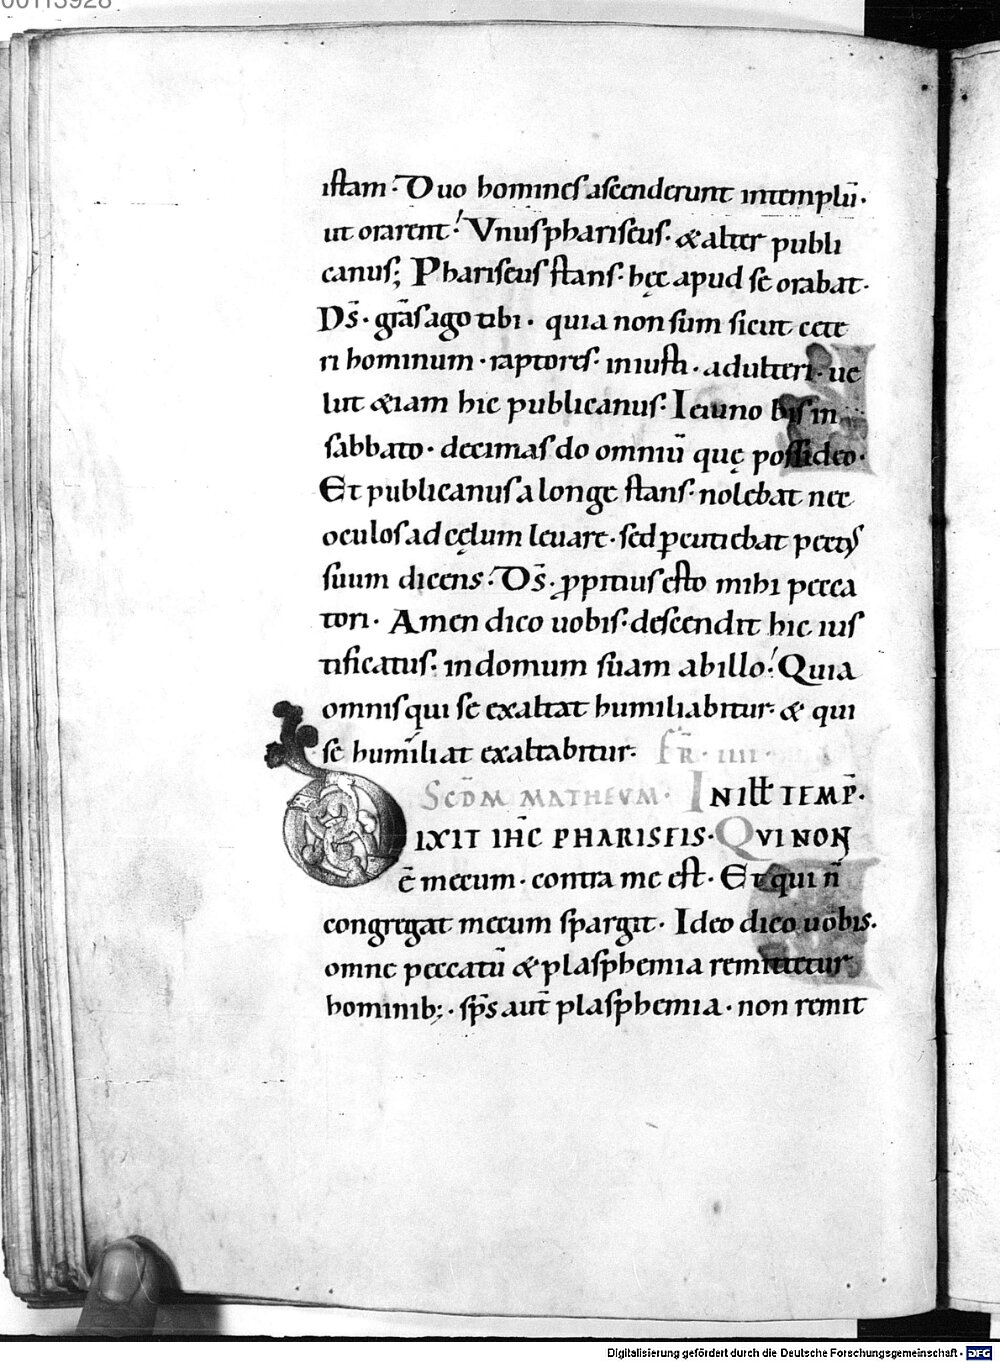 00113928
istam. Duo homines ascenderunt in templū.
ut orarent! Vnus phariseus. & alter publi
canus; Phariseus stans. hęc apud se orabat.
Dꝭ̄. grās ago tibi. quia non sum sicut cete
ri hominum. raptores. iniusti. adulteri. ue
lut &iam hic publicanus. Ieiuno bis in
sabbato. decimas do omniū quę possideo.
Et publicanus a longe stans. nolebat nec
oculos ad cęlum leuare. sed ꝑcutiebat pectꝰ
suum dicens. Ds̄. ꝓpitius esto mihi pecca
tori. Amen dico uobis. descendit hic ius
tificatus. in domum suam ab illo! Quia
omnis qui se exaltat humiliabitur. & qui
se humiliat exaltabitur. FR̄. IIII.
SCDM̄ MATHEVM. IN ILLꝉ TEMP̄.
DIXIT IHC̄ PHARISEIS. QVI NON
ē mecum. contra me est. Et qui n̄
congregat mecum spargit. Ideo dico uobis.
omne peccatū & plasphemia remittetur
hominib;. sp̄s aut̄ plasphemia. non remit
Digitalisierung gefördert durch die Deutsche Forschungsgemeinschaft - DFG